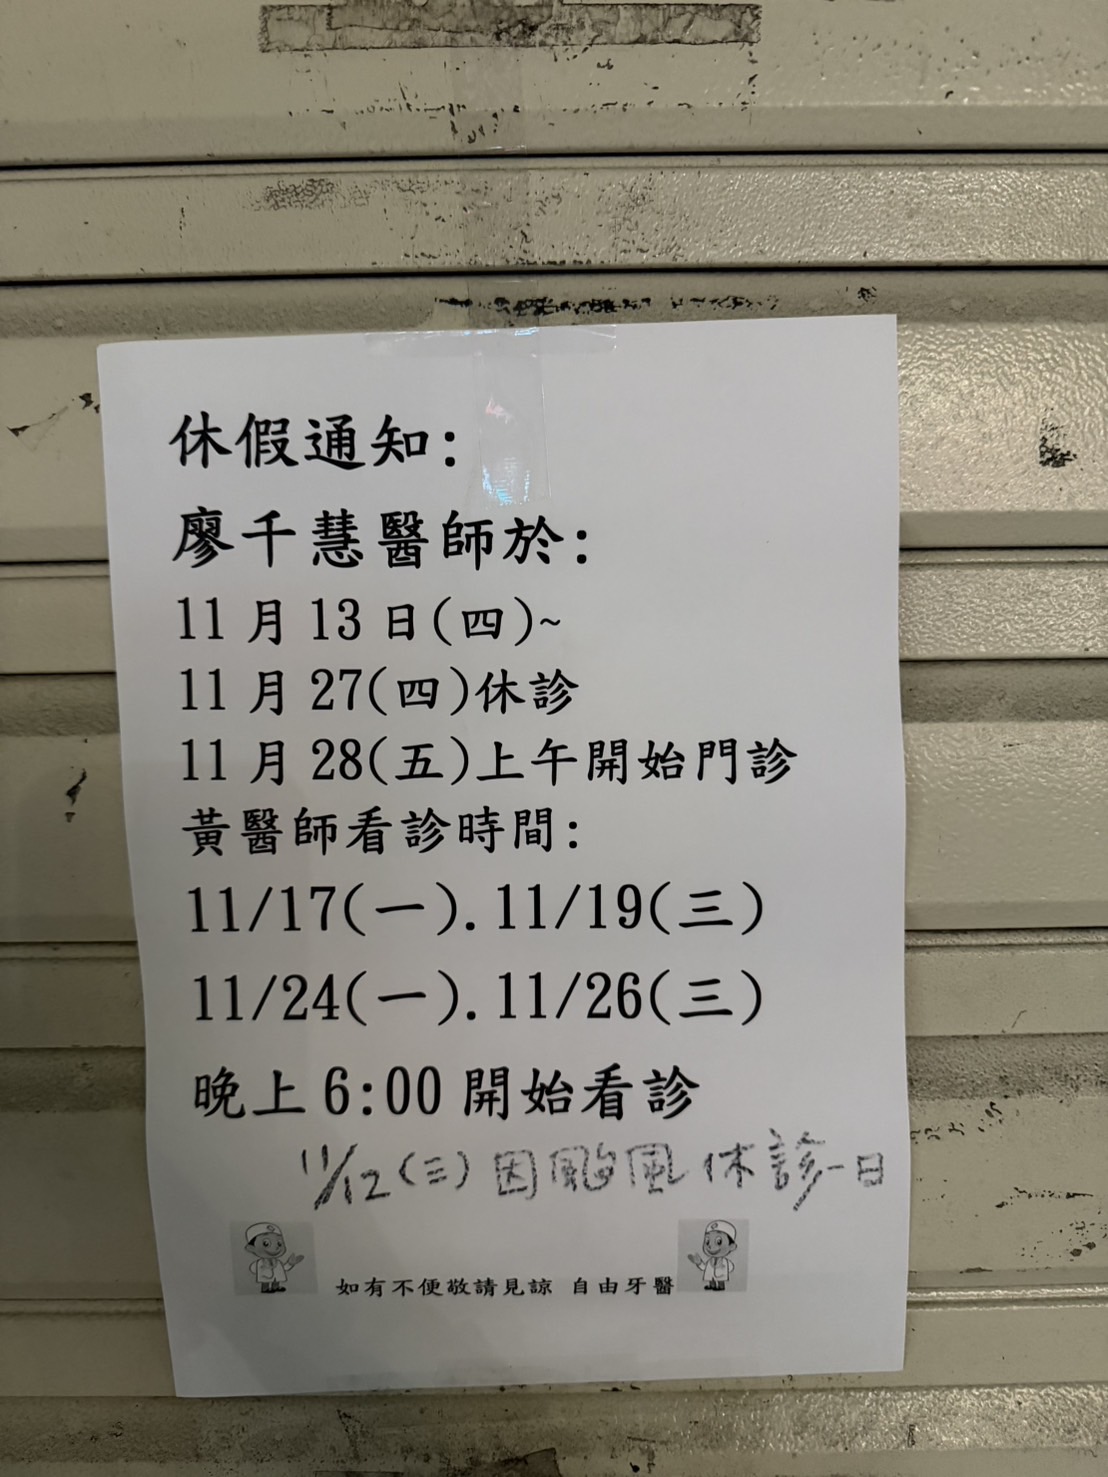 休假通知:
廖千慧醫師於:
11 月 13 日(四)~
11 月 27(四)休診
11 月 28(五)上午開始門診
黃醫師看診時間:
11/17(一).11/19(三)
11/24(一).11/26(三)
晚上 6:00 開始看診
11/12(三)因颱風休診一日
如有不便敬請見諒 自由牙醫